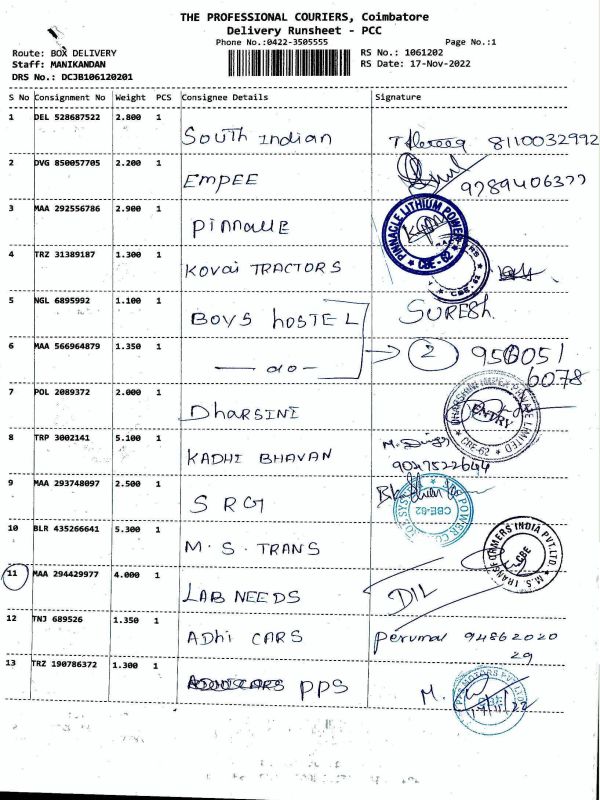 THE PROFESSIONAL COURIERS, Coimbatore
Delivery Runsheet - PCC
Phone No.:0422-3505555 Page No.:1
Route: BOX DELIVERY RS No.: 1061202
Staff: MANIKANDAN RS Date: 17-Nov-2022
DRS No.: DCJB106120201
S No Consignment No Weight PCS Consignee Details Signature
1 DEL 528687522 2.800 1 South Indian 8110032992
2 DVG 850057705 2.200 1 EMPEE 9789406377
3 MAA 292556786 2.900 1 PINNACLE PINNACLE LITHIUM POWER CBE-62
4 TRZ 31389187 1.300 1 KOVAI TRACTORS CBE-62
5 NGL 6895992 1.100 1 BOYS HOSTEL SURESH
6 MAA 566964879 1.350 1 — do — 2 950051
6078
7 POL 2089372 2.000 1 DHARSINI DHARSHINI IMPEX PRIVATE LIMITED ENTRY CBE-62
8 TRP 3002141 5.100 1 KADHI BHAVAN
9047522644
9 MAA 293748097 2.500 1 SRG CBE-62
10 BLR 435266641 5.300 1 M.S. TRANS M.S. TRANSFORMERS INDIA PVT.LTD. CBE
11 MAA 294429977 4.000 1 LAB NEEDS DIL
12 TNJ 689526 1.350 1 ADHI CARS Perumal 94862020
29
13 TRZ 190786372 1.300 1 PPS M. PPS MOTORS PVT LTD 17/11/22